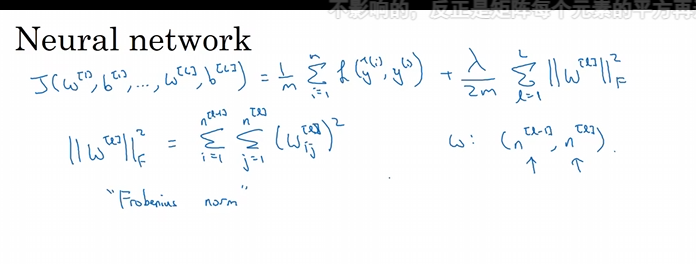 不影响的，反正是矩阵每个元素的平方再
Neural network
J(w^[1], b^[1], ..., w^[L], b^[L]) = 1/m Σ_{i=1}^{n} L(ŷ^(i), y^(i)) + λ/2m Σ_{l=1}^{L} ||w^[l]||²_F
||w^[l]||²_F = Σ_{i=1}^{n^[l-1]} Σ_{j=1}^{n^[l]} (w_ij^[l])² w: (n^[l-1], n^[l]).
↑ ↑
"Frobenius norm"